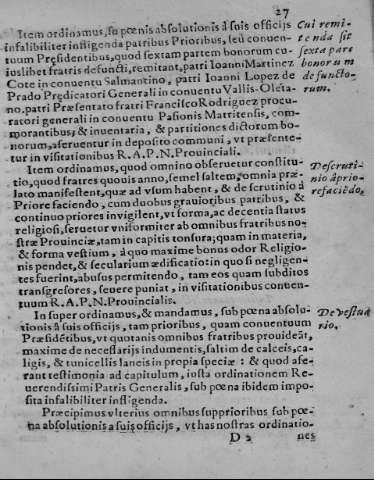 27
Item ordinamus, su pœnis absolutionis à suis officijs
infalibiliter infligenda patribus Prioribus, seù conuen-
tuum Præsidentibus, quod sextam partem bonorum cu-
iuslibet fratris defuncti, remitant, patri Ioanni Martinez
Cote in conuentu Salmantino, patri Ioanni Lopez de
Prado Prędicatori Generali in conuentu Vallis-Oleta-
no, patri Præsentato fratri Francisco Rodriguez procu-
ratori generali in conuentu Pasionis Matritensis, com-
morantibus; & inuentaria, & partitiones dictorum bo-
norum, aseruentur in deposito communi, vt præsente-
tur in visitationibus R. A. P. N. Prouinciali.
Cui remi-
tenda sit
sexta pars
bonorum
defuncto-
rum.
Item ordinamus, quod omnino obseruetur constitu-
tio, quod fratres quouis anno, semel saltem, omnia præ-
lato manifestent, quæ ad vsum habent, & de scrutinio à
Priore faciendo, cum duobus grauioribus patribus, &
continuo priores inuigilent, vt forma, ac decentia status
religiosi, seruetur vniformiter ab omnibus fratribus no-
stræ Prouinciæ, tam in capitis tonsura; quam in materia,
& forma vestium, à quo maxime bonus odor Religio-
nis pendet, & secularium ædificatio in quo si negligen-
tes fuerint, abusus permitendo, tam eos quam subditos
transgresores, seuere puniat, in visitationibus conuen-
tuum R. A. P. N. Prouincialis.
De scruti-
nio à prio-
re faciẽdo,
In super ordinamus, & mandamus, sub pœna absolu-
tionis à suis officijs, tam prioribus, quam conuentuum
Præsidẽtibus, vt quotanis omnibus fratribus prouideãt,
maxime de necessarijs indumentis, saltim de calceis, ca-
ligis, & tunicellis laneis in propia speciæ : & quod afe-
rant testimonia ad capitulum, iusta ordinationem Re-
uerendissimi Patris Generalis, sub pœna ibidem impo-
sita infalibiliter infligenda.
De vestua
rio.
Præcipimus vlterius omnibus supprioribus sub pœ-
na absolutionis à suis officijs, vt has nostras ordinatio-
D 2 nes